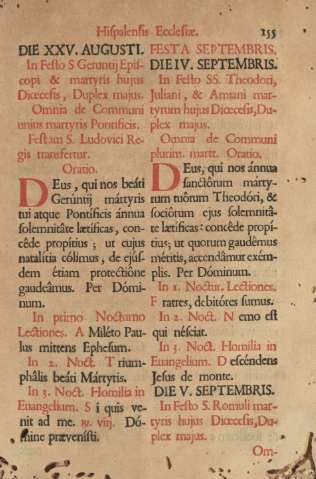 Hispalensis Ecclesiæ. 155
DIE XXV. AUGUSTI.
In Festo S Geruntij Epis-
copi & martyris hujus
Diœcesis, Duplex majus.
Omnia de Communi
unius martyris Pontificis.
Festum S. Ludovici Re-
gis transfertur.
Oratio.
DEus, qui nos beáti
Geruntij mártyris
tui atque Pontificis ánnua
solemnitáte lætíficas, con-
céde propítius; ut cujus
natalítia cólimus, de ejús-
dem étiam protectióne
gaudeâmus. Per Dómi-
num.
In primo Nocturno
Lectiones. A Miléto Pau-
lus mittens Ephesum.
In 2. Noct. Trium-
phális beáti Mártyris.
In 3. Noct. Homilia in
Euangelium. Si quis ve-
nit ad me. ut. viij. Dó-
mine prævenísti.
FESTA SEPTEMBRIS.
DIE IV. SEPTEMBRIS.
In Festo SS. Theodori,
Juliani, & Amiani mar-
tyrum hujus Diœcesis, Du-
plex majus.
Omnia de Communi
plurim. martt. Oratio.
DEus, qui nos ánnua
sanctórum márty-
rum tuórum Theodóri, &
sociórum ejus solemnitá-
te lætíficas: concéde propí-
tius; ut quorum gaudémus
méritis, accendámur exém-
plis. Per Dóminum.
In 1. Noctur. Lectiones.
Fratres, debitóres sumus.
In 2. Noct. Nemo est
qui nésciat.
In 3. Noct. Homilia in
Euangelium. Descéndens
Jesus de monte.
DIE V. SEPTEMBRIS.
In Festo S. Romuli mar-
tyris hujus Diœcesis, Du-
plex majus.
Om-